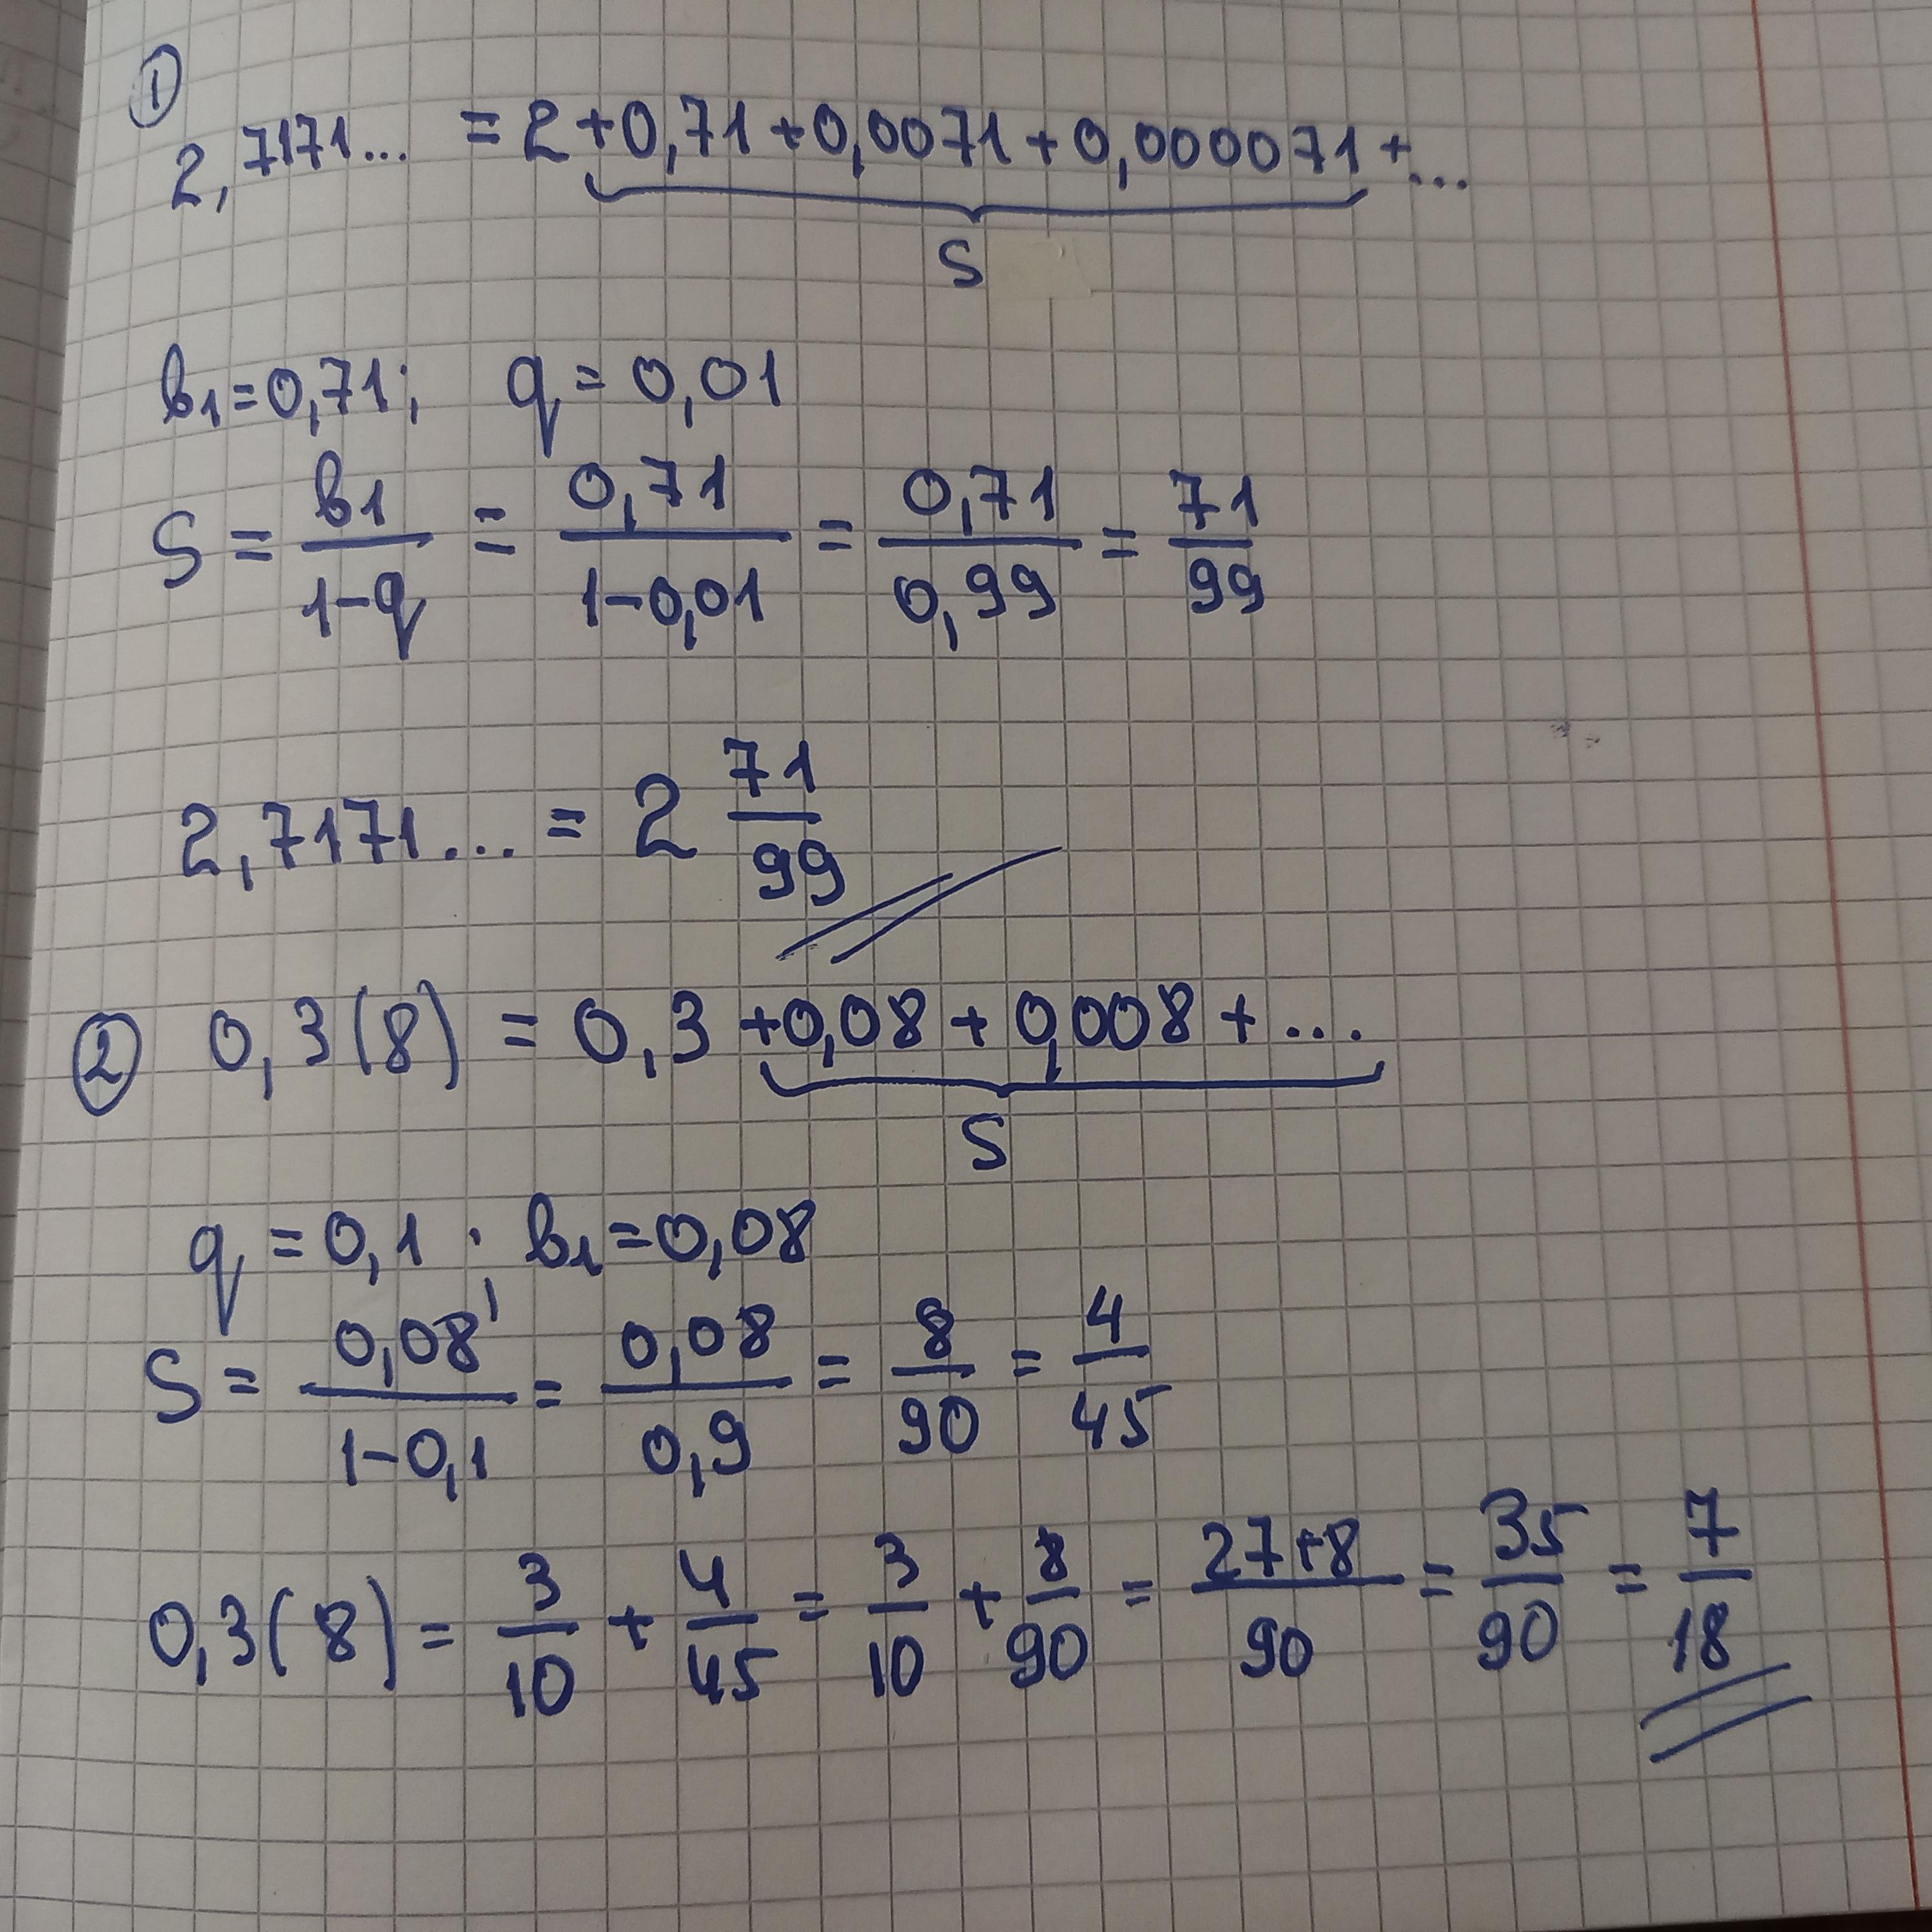 ①
2,7171... = 2+0,71+0,0071+0,000071+...
S
b₁=0,71; q=0,01
S = b₁/(1-q) = 0,71/(1-0,01) = 0,71/0,99 = 71/99
2,7171... = 2 71/99
② 0,3(8) = 0,3+0,08+0,008+....
S
q=0,1; b₁=0,08
S = 0,08/(1-0,1) = 0,08/0,9 = 8/90 = 4/45
0,3(8) = 3/10 + 4/45 = 3/10 + 8/90 = (27+8)/90 = 35/90 = 7/18